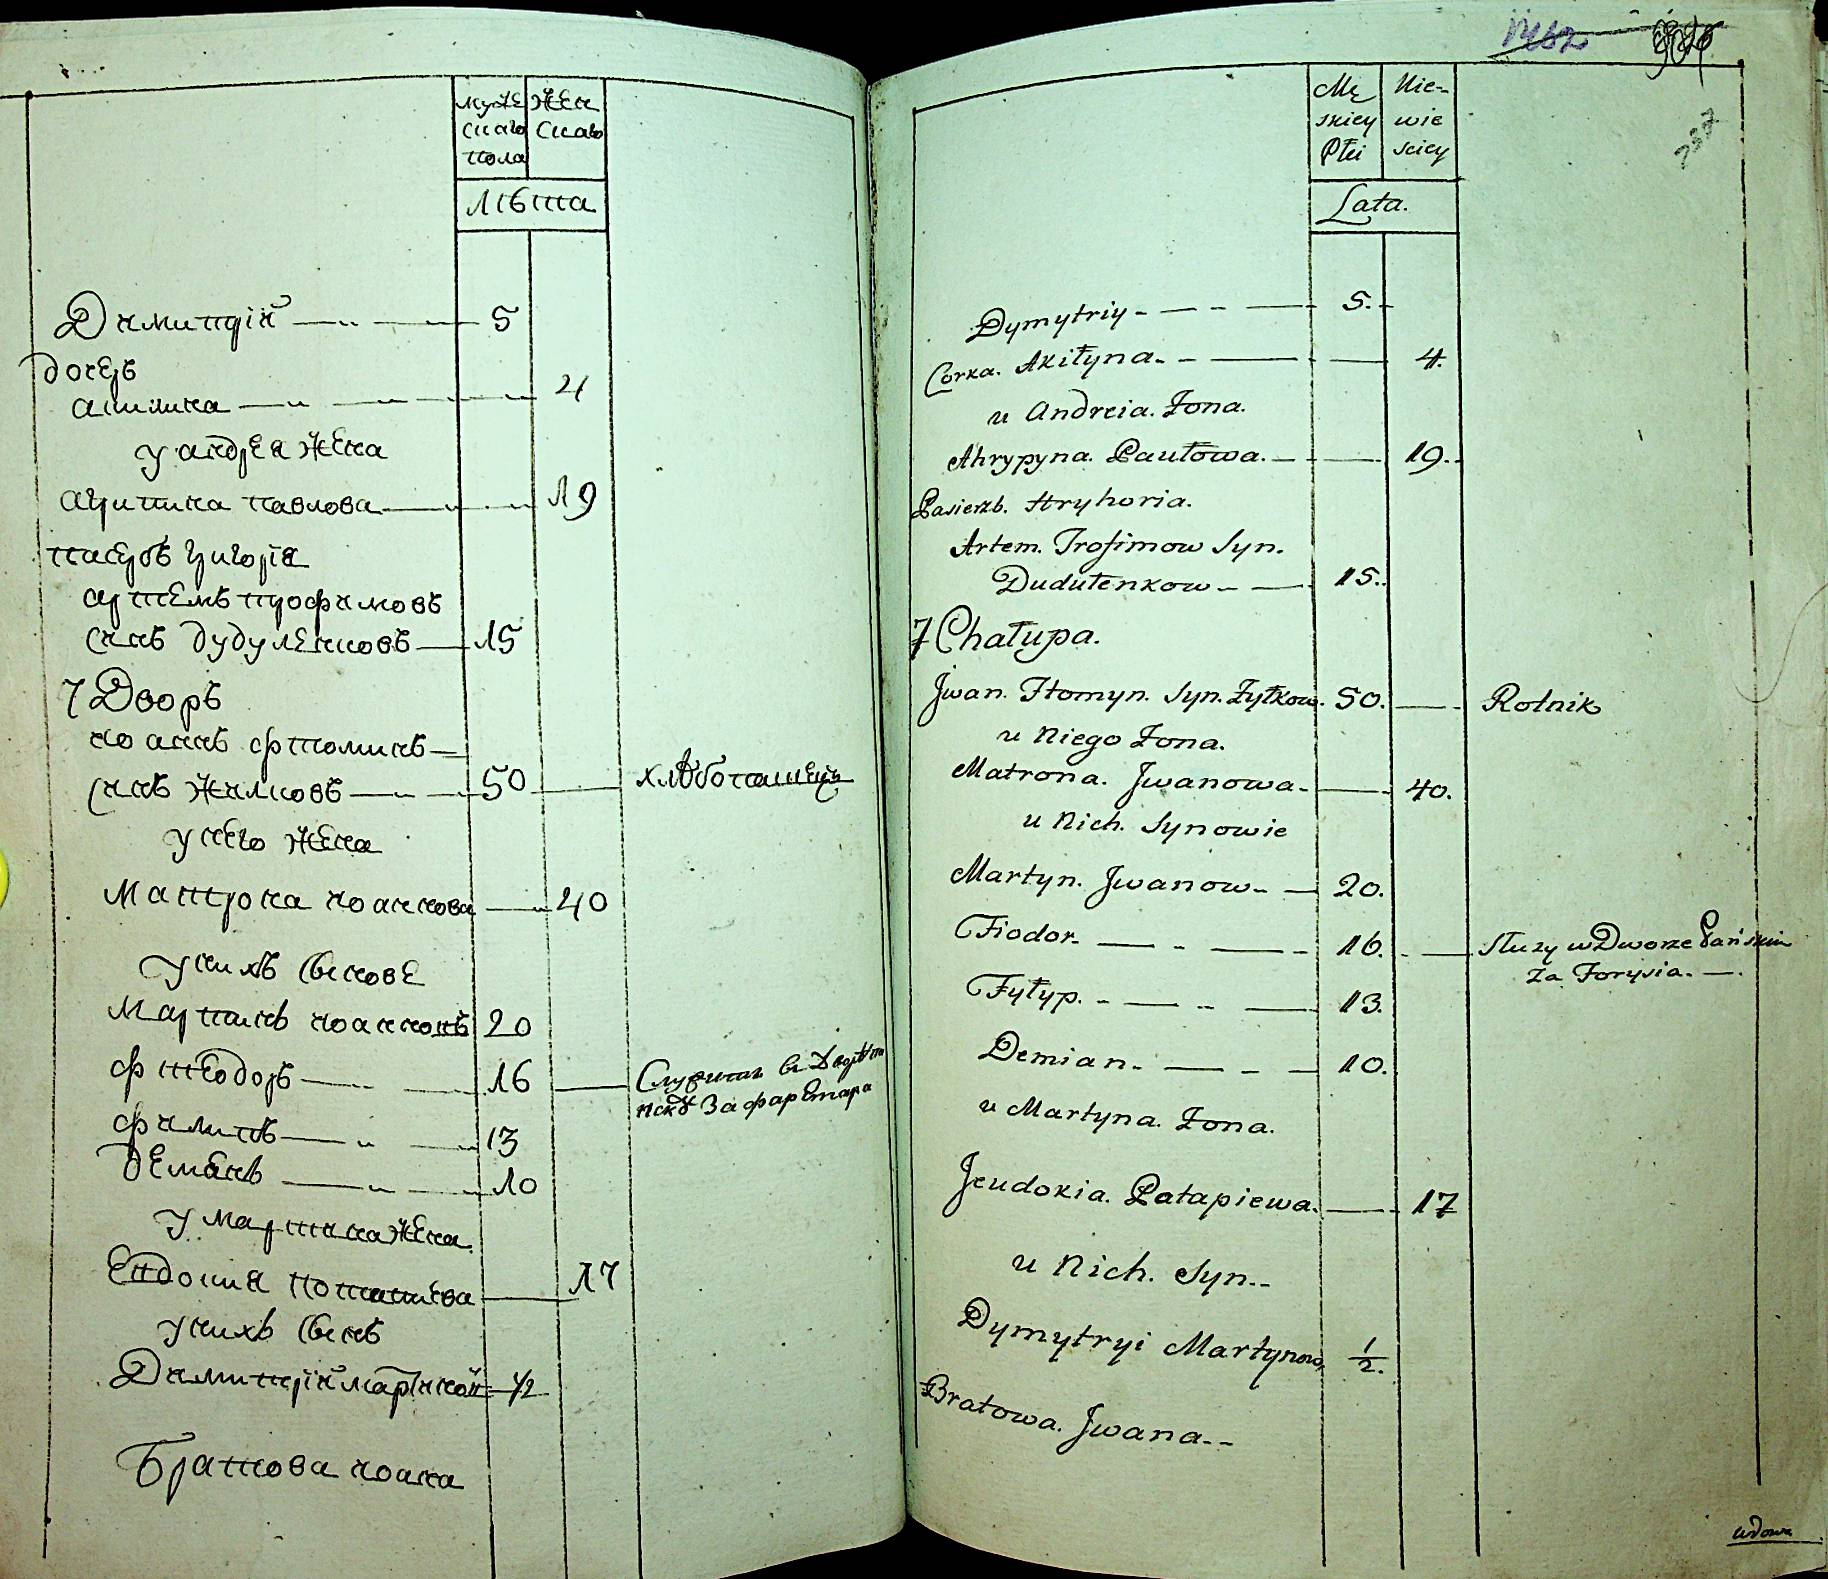 мужє
скаго
пола
жєн
скаго
лѣта
Димитрій 5
дочерь
акилина 4
у андрея жєна
агрипина павлова 19
пасербъ григорія
артємъ трофимовъ
синъ дудулєнковъ 15
7 Дворъ
иоаннъ фтоминъ
синъ жилковъ 50 хлѣбопашецъ
у него жєна
матрона иоаннова 40
у нихъ сынове
мартинъ иоанновъ 20
фтєодоръ 16 Служитъ въ
за фарєтара
филипъ 13
дємянъ 10
у мартина жєна
Євдокия потапієва 17
у нихъ сынъ
Димитрій 1/2
Братова иоана
Mę
skiey
Płci
Nie-
wie
sciey
Lata.
237
Dymytriy 5.
Corka. Akiłyna 4.
u Andreia. Żona.
Ahrypyna. Pawłowa. 19.
Pasierzb. Hryhoria.
Artem. Trofimow Syn.
Dudułenkow 15.
7 Chałupa.
Jwan. Htomyn. Syn. Żyłkow. 50. Rolnik
u Niego Żona.
Matrona. Jwanowa 40.
u Nich. Synowie
Martyn. Jwanow 20.
Fiodor. 16. Służy w Dworze Pańskim
za Forysia.
Fyłyp. 13.
Demian. 10.
u Martyna. Żona.
Jeudokia. Patapiewa. 17
u Nich. Syn.
Dymytryi Martynow 1/2.
Bratowa. Jwana
wdowa